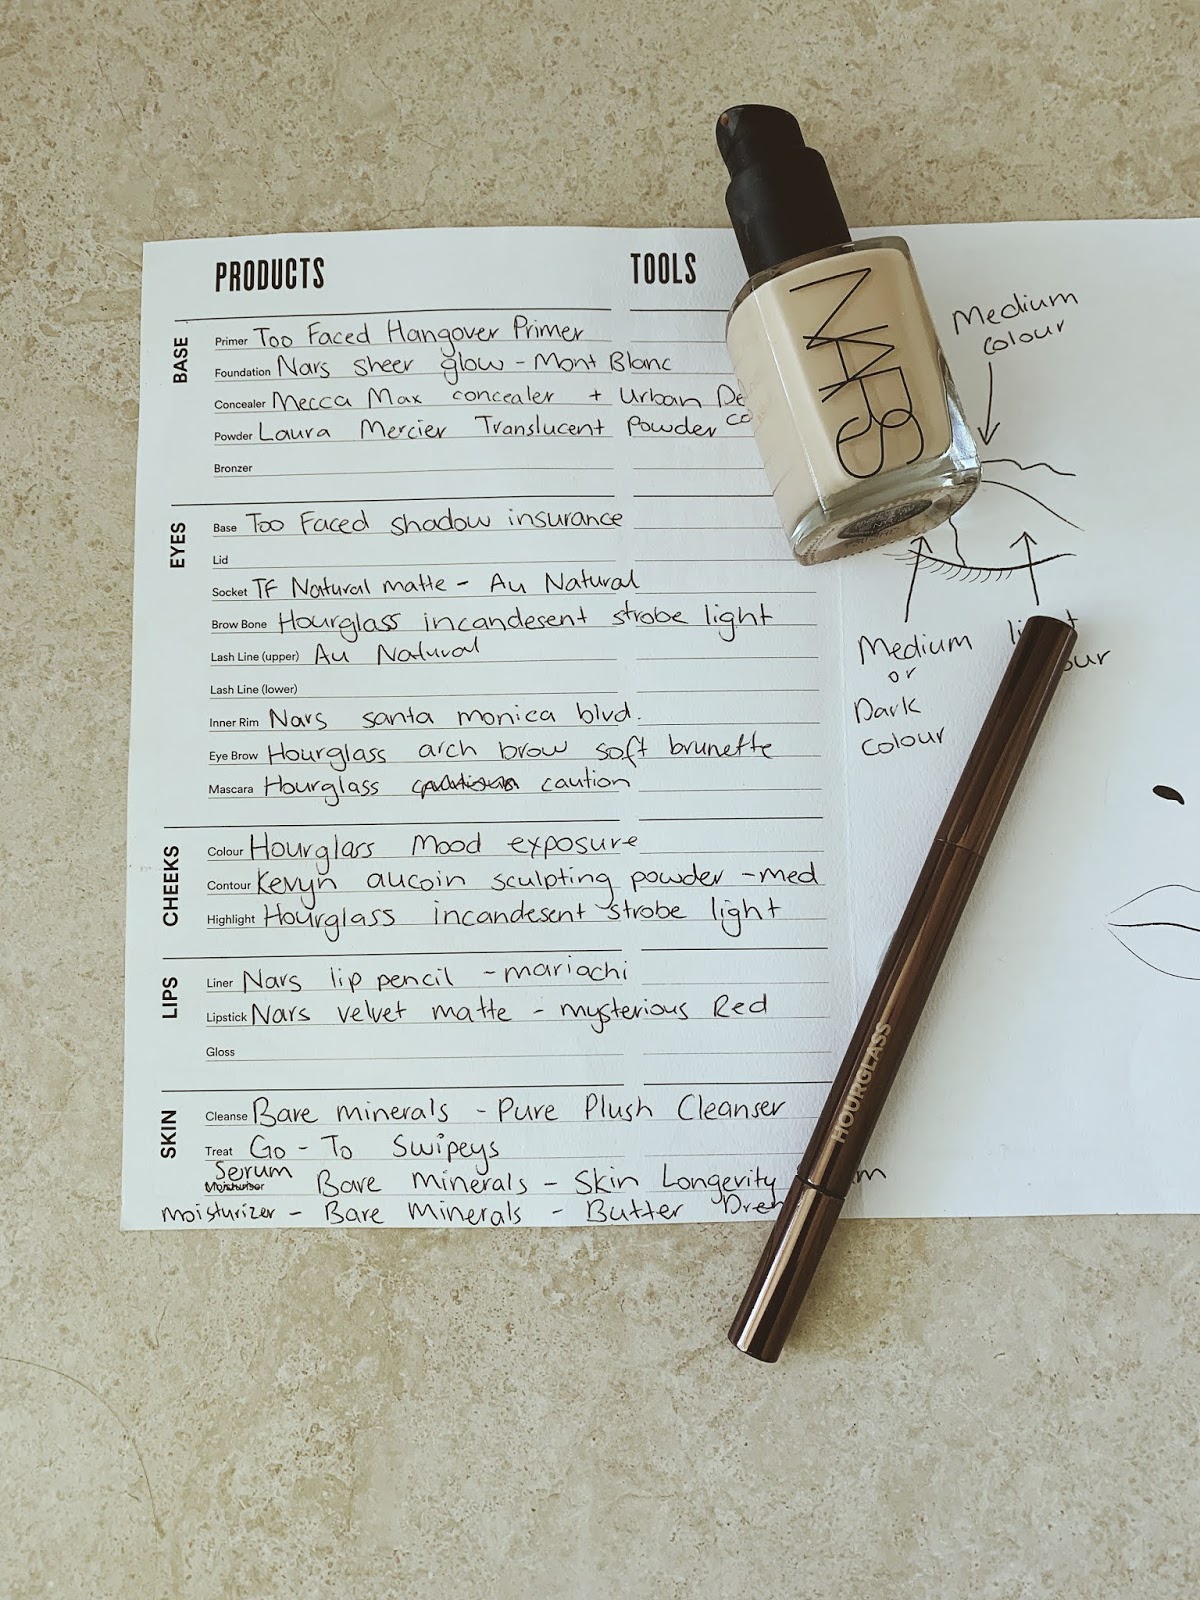 PRODUCTS TOOLS
BASE
Primer Too Faced Hangover Primer
Foundation Nars sheer glow - Mont Blanc
Concealer Mecca Max concealer + Urban De
Powder Laura Mercier Translucent Powder co
Bronzer
EYES
Base Too Faced shadow insurance
Lid
Socket TF Natural matte - Au Natural
Brow Bone Hourglass incandesent strobe light
Lash Line (upper) Au Natural
Lash Line (lower)
Inner Rim Nars santa monica blvd.
Eye Brow Hourglass arch brow soft brunette
Mascara Hourglass caution
CHEEKS
Colour Hourglass Mood exposure
Contour Kevyn aucoin sculpting powder - med
Highlight Hourglass incandesent strobe light
LIPS
Liner Nars lip pencil - mariachi
Lipstick Nars velvet matte - mysterious Red
Gloss
SKIN
Cleanse Bare minerals - Pure Plush Cleanser
Treat Go - To Swipeys
Serum
Moisturiser Bare Minerals - Skin Longevity
moisturizer - Bare Minerals - Butter Dren
NARS
Medium
colour
Medium
or
Dark
colour
HOURGLASS